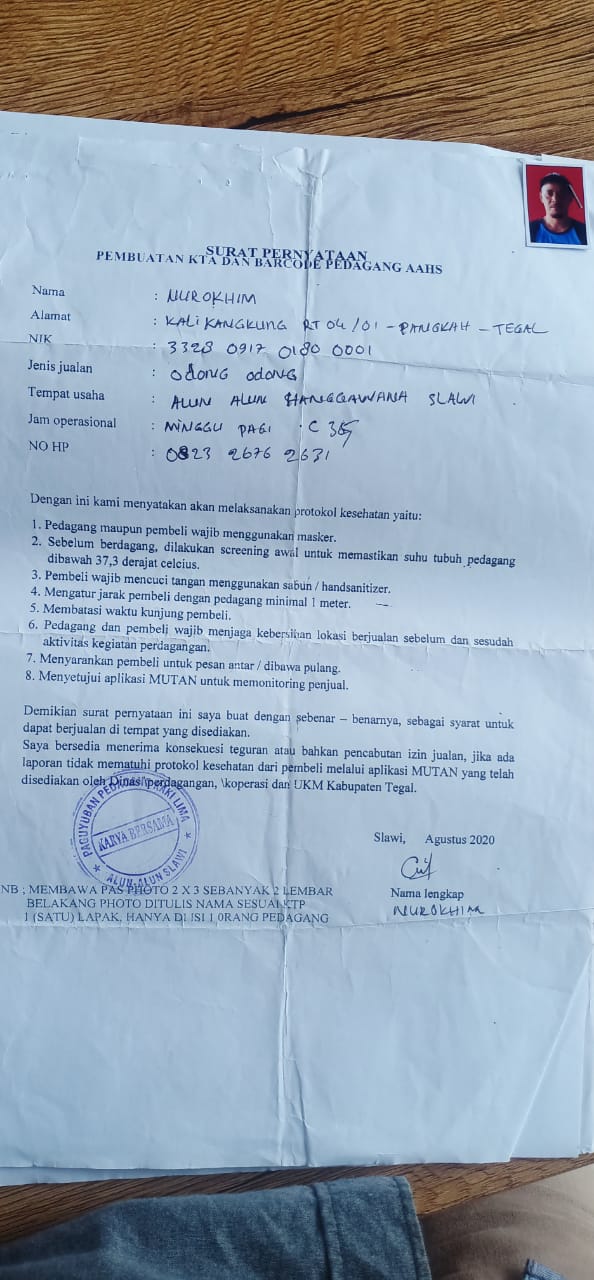 SURAT PERNYATAAN
PEMBUATAN KTA DAN BARCODE PEDAGANG AAHS
Nama : NUROKHIM
Alamat : KALIKANGKUNG RT 04/01 - PANGKAH - TEGAL
NIK : 3328 0917 0180 0001
Jenis jualan : ODONG ODONG
Tempat usaha : ALUN ALUN HANGGAWANA SLAWI
Jam operasional : MINGGU PAGI
NO HP : 0823 2676 2631
Dengan ini kami menyatakan akan melaksanakan protokol kesehatan yaitu:
1. Pedagang maupun pembeli wajib menggunakan masker.
2. Sebelum berdagang, dilakukan screening awal untuk memastikan suhu tubuh pedagang
dibawah 37,3 derajat celcius.
3. Pembeli wajib mencuci tangan menggunakan sabun / handsanitizer.
4. Mengatur jarak pembeli dengan pedagang minimal 1 meter.
5. Membatasi waktu kunjung pembeli.
6. Pedagang dan pembeli wajib menjaga kebersihan lokasi berjualan sebelum dan sesudah
aktivitas kegiatan perdagangan.
7. Menyarankan pembeli untuk pesan antar / dibawa pulang.
8. Menyetujui aplikasi MUTAN untuk memonitoring penjual.
Demikian surat pernyataan ini saya buat dengan sebenar – benarnya, sebagai syarat untuk
dapat berjualan di tempat yang disediakan.
Saya bersedia menerima konsekuesi teguran atau bahkan pencabutan izin jualan, jika ada
laporan tidak mematuhi protokol kesehatan dari pembeli melalui aplikasi MUTAN yang telah
disediakan oleh Dinas perdagangan, \koperasi dan UKM Kabupaten Tegal.
PAGUYUBAN PEDAGANG KAKI LIMA
KARYA BERSAMA
ALUN-ALUN SLAWI
Slawi, Agustus 2020
Nama lengkap
NUROKHIM
NB ; MEMBAWA PAS PHOTO 2 X 3 SEBANYAK 2 LEMBAR
BELAKANG PHOTO DITULIS NAMA SESUAI KTP
1 (SATU) LAPAK, HANYA DI ISI 1 0RANG PEDAGANG